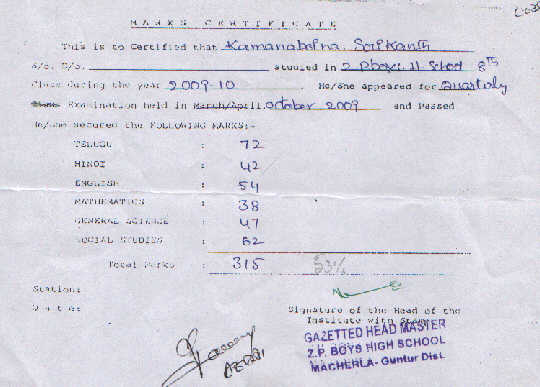 MARKS CERTIFICATE
This is to Certified that Kamanaboina. Srikanth
S/o. D/o. studied in Z.P.Boys.H.School 8th
Class during the year 2009-10 He/She appeared for Quarterly
Examination held in March/April. October 2009 and Passed
He/She secured the FOLLOWING MARKS:-
TELUGU : 72
HINDI : 42
ENGLISH : 54
MATHEMATICS : 38
GENERAL SCIENCE : 47
SOCIAL STUDIES : 62
Total Marks : 315 53%
Station:
Date:
Signature of the Head of the
Institute with Stamp
GAZETTED HEAD MASTER
Z.P. BOYS HIGH SCHOOL
MACHERLA- Guntur Dist.